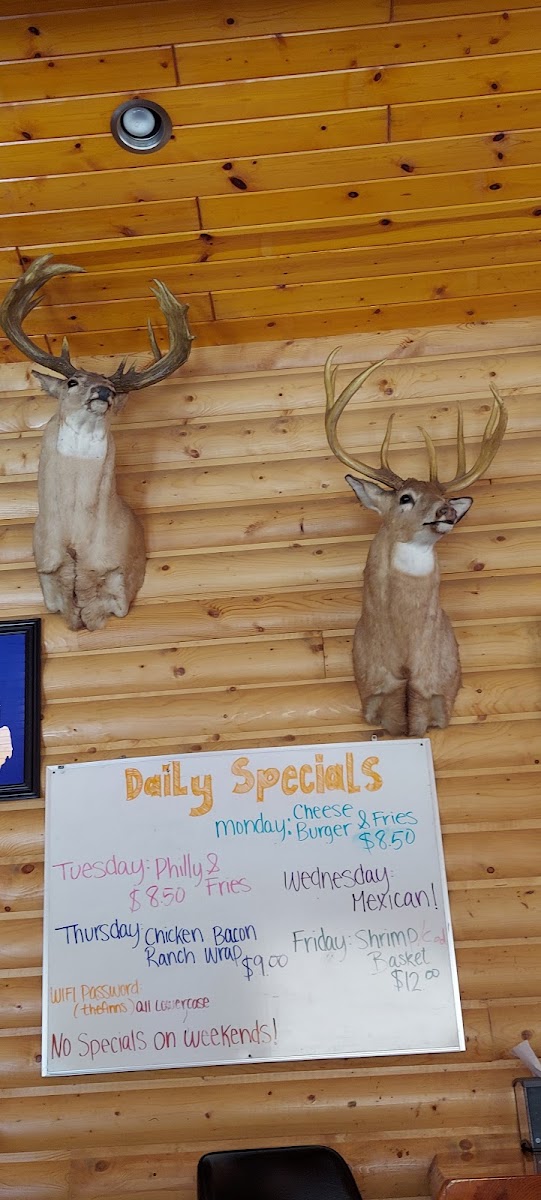 Daily Specials
Monday: Cheese Burger & Fries
$8.50
Tuesday: Philly & Fries
$8.50
Wednesday:
Mexican!
Thursday: Chicken Bacon
Ranch Wrap $9.00
Friday: Shrimp/Cod!
Basket
$12.00
WIFI Password:
(thefinns) all lowercase
No Specials on weekends!